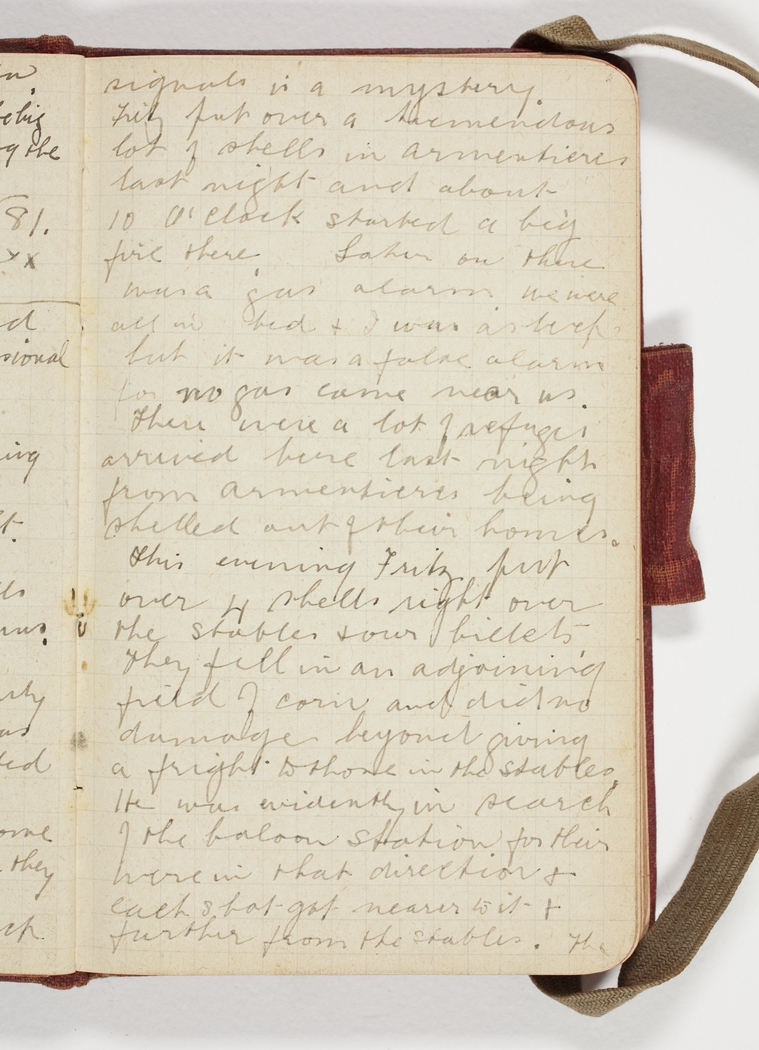 signals is a mystery.
Fritz put over a tremendous
lot of shells in armentieres
last night and about
10 O'Clock started a big
fire there Later on there
was a gas alarm we were
all in bed & I was asleep
but it was a false alarm
for no gas came near us.
There were a lot of refuges
arrived here last night
from armentieres being
shelled out of their homes.
This evening Fritz put
over 4 shells right over
the stables & our billets
They fell in an adjoining
field of corn and did no
damage beyond giving
a fright to those in the stables.
He was evidently in search
of the baloon station for their
were in that direction &
each shot got nearer to it &
further from the stables. The
the
81.
xx
sional
they